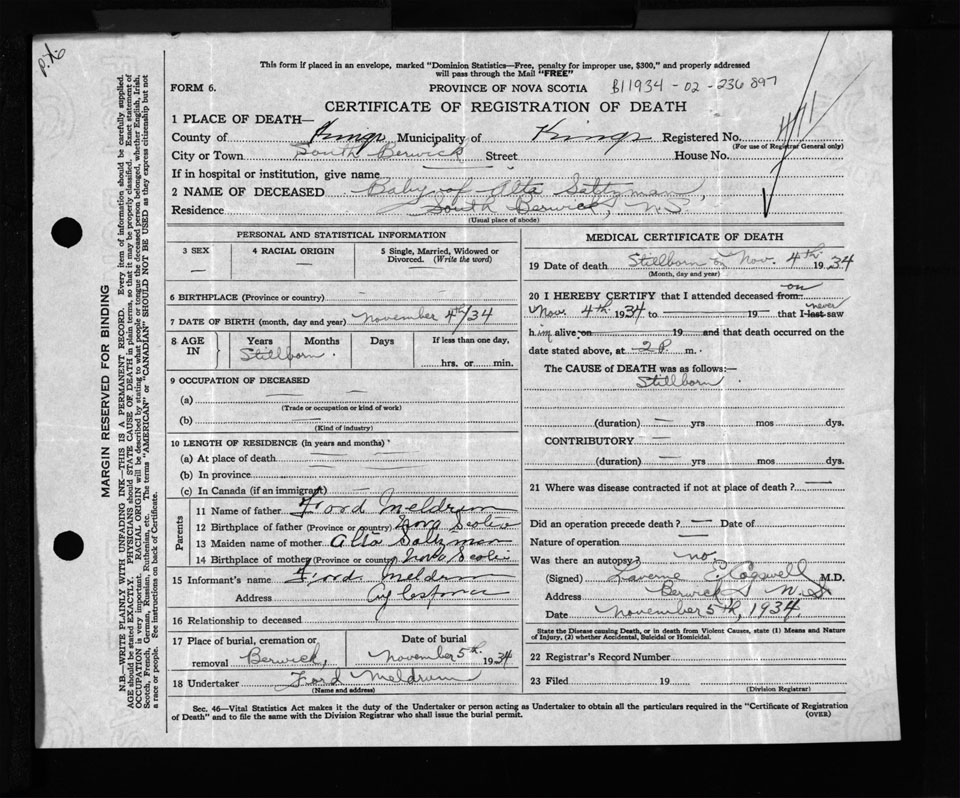 p. 76
This form if placed in an envelope, marked "Dominion Statistics—Free, penalty for improper use, $300," and properly addressed
will pass through the Mail "FREE"
FORM 6. PROVINCE OF NOVA SCOTIA B11934-02-236 897
CERTIFICATE OF REGISTRATION OF DEATH
1 PLACE OF DEATH—
County of Kings Municipality of Kings Registered No.
(For use of Registrar General only)
City or Town South Berwick Street House No.
If in hospital or institution, give name
2 NAME OF DECEASED Baby of Alta Saltzman,
Residence South Berwick, N.S.
(Usual place of abode)
PERSONAL AND STATISTICAL INFORMATION
3 SEX — 4 RACIAL ORIGIN — 5 Single, Married, Widowed or Divorced. (Write the word) —
6 BIRTHPLACE (Province or country) —
7 DATE OF BIRTH (month, day and year) November 4th/34
8 AGE IN Years Months Days If less than one day,
Stillborn hrs. or min.
9 OCCUPATION OF DECEASED
(a) —
(Trade or occupation or kind of work)
(b) —
(Kind of industry)
10 LENGTH OF RESIDENCE (in years and months)
(a) At place of death —
(b) In province —
(c) In Canada (if an immigrant) —
Parents
11 Name of father Ford Meldrum
12 Birthplace of father (Province or country) Nova Scotia
13 Maiden name of mother Alta Saltzman
14 Birthplace of mother (Province or country) Nova Scotia
15 Informant's name Ford Meldrum
Address Aylesford
16 Relationship to deceased
17 Place of burial, cremation or removal Berwick, Date of burial November 5th. 1934
18 Undertaker Ford Meldrum
(Name and address)
MEDICAL CERTIFICATE OF DEATH
19 Date of death Stillborn on Nov. 4th. 1934
(Month, day and year)
20 I HEREBY CERTIFY that I attended deceased from on
Nov. 4th. 1934 to — 19— that I last never saw
him alive on 19 and that death occurred on
date stated above, at 2 P m.
The CAUSE of DEATH was as follows:—
Stillborn.
(duration) — yrs mos dys.
CONTRIBUTORY —
(duration) — yrs mos dys.
21 Where was disease contracted if not at place of death? —
Did an operation precede death? — Date of
Nature of operation —
Was there an autopsy? no
(Signed) Laverne E. Cogswell M.D.
Address Berwick, N.S.
Date November 5th, 1934.
State the Disease causing Death, or in death from Violent Causes, state (1) Means and Nature
of Injury, (2) whether Accidental, Suicidal or Homicidal.
22 Registrar's Record Number
23 Filed 19
(Division Registrar)
Sec. 46—Vital Statistics Act makes it the duty of the Undertaker or person acting as Undertaker to obtain all the particulars required in the "Certificate of Registration
of Death" and to file the same with the Division Registrar who shall issue the burial permit. (OVER)
MARGIN RESERVED FOR BINDING
N.B.—WRITE PLAINLY WITH UNFADING INK—THIS IS A PERMANENT RECORD. Every item of information should be carefully supplied.
AGE should be stated EXACTLY. PHYSICIANS should STATE CAUSE OF DEATH in plain terms, so that it may be properly classified. Exact statement of
OCCUPATION is very important. RACIAL ORIGIN will be described by stating to what people or tongue the deceased person belonged, whether English, Irish,
Scotch, French, German, Russian, Ruthenian, etc. The terms "AMERICAN" or "CANADIAN" SHOULD NOT BE USED as they express citizenship but not
a race or people. See instructions on back of Certificate.